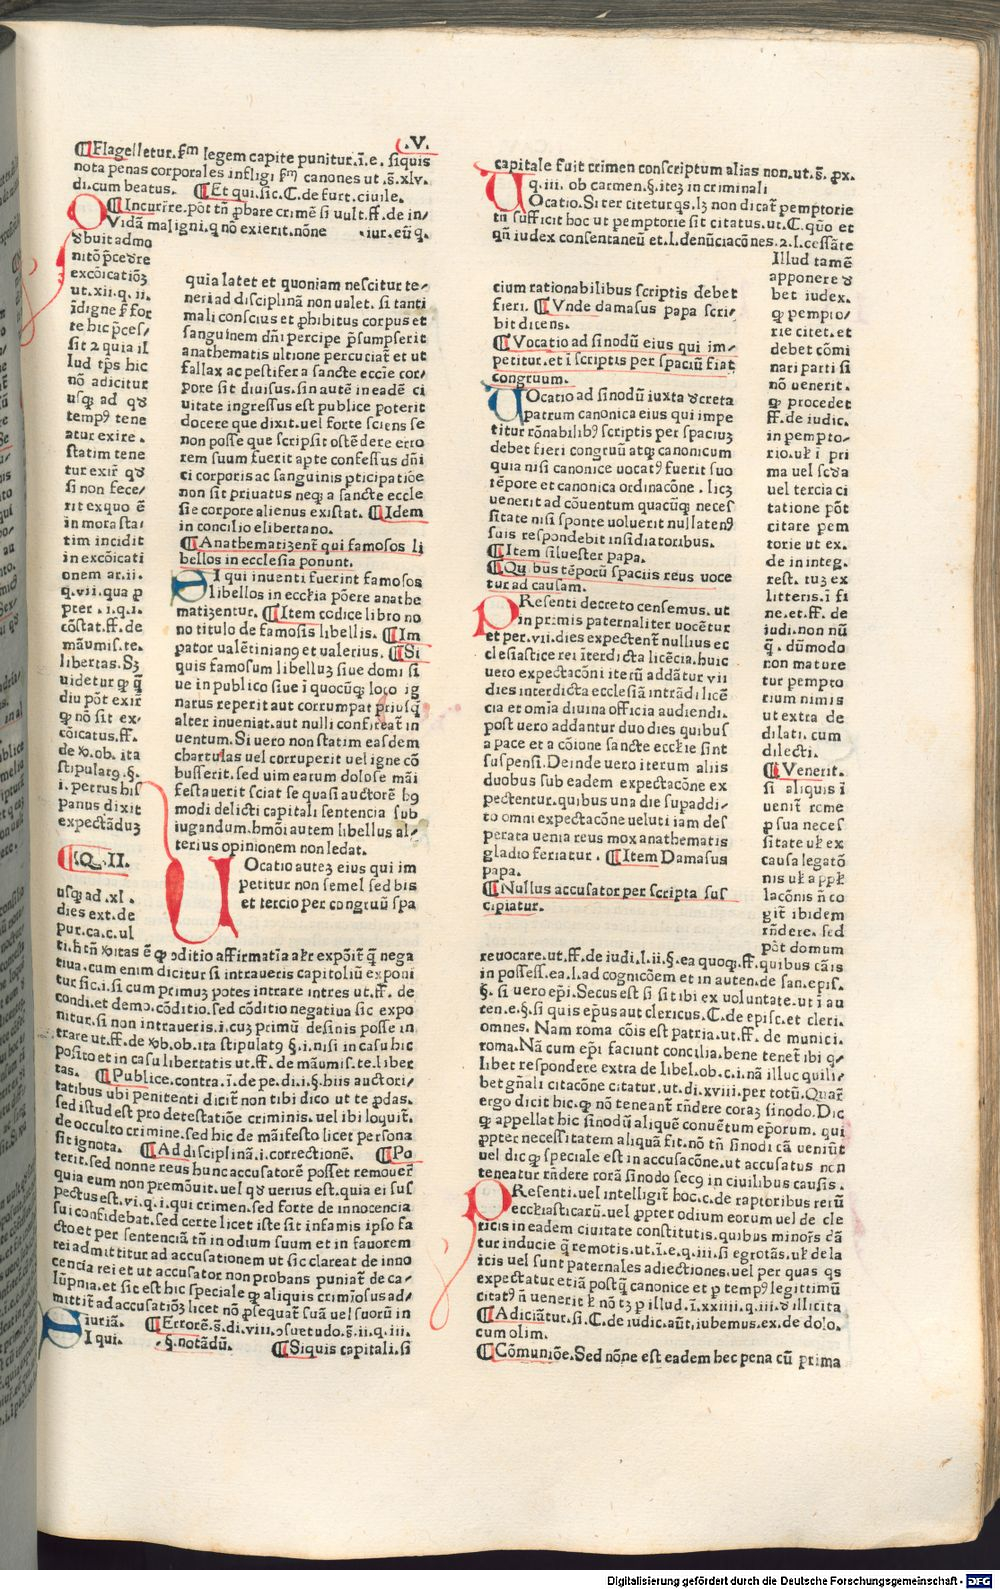 .V.
¶Flagelletur. s̄m legem capite punitur. ī. e. siquis
nota penas corporales infligi s̄m canones ut .s̄. xlv.
di. cum beatus. ¶Et qui. sic. C. de furt. ciuile.
¶Incurrĩre. pōt tn̄ ꝓbare crimē si uult. ff. de in/
Vidā maligni. q nō exierit. nōne iur. eūq.
ꝺbuit admo
nitō p̄ceꝺre
excōicatiōꝫ
ut. xii. q. ii.
īdigne ꝑ for
te hic p̄ces/
sit 2 quia il
lud tp̄s hic
nō adicitur
usqꝫ ad qꝺ
tempꝰ tene
atur exire .
statim tene
tur exir̄ qꝺ
si non fece/
rit exquo ē
in mora sta/
tim incidit
in excōicati
onem ar. ii.
q. vii. qua ꝓ
pter . i. q. i.
cōstat. ff. de
māumis. te.
libertas. Sꝫ
uidetur ꝙ q̄
diu pōt exir̄
ꝙ nō sit ex/
cōicatus. ff.
de ꝟo. ob. ita
stipulatꝰ. §.
i. petrus his
panus dixit
expectāduꝫ
quia latet et quoniam nescitur te/
neri ad disciplinā non ualet. si tanti
mali conscius et ꝓhibitus corpus et
sanguinem dn̄i percipe p̄sumpserit
anathematis ultione percuciat̄ et ut
fallax ac pestifer a sancte eccīe cor/
pore sit diuisus. sin autē in eadē ci
uitate ingressus est publice poterit
docere que dixit. uel forte sciens se
non posse que scripsit ostēdere erro
rem suum fuerit apte confessus dn̄i
ci corporis ac sanguinis pticipatiōe
non sit priuatus neqꝫ a sancte eccle
sie corpore alienus existat. ¶Idem
in concilio elibertano.
¶Anathematiꝫent̄ qui famosos li
bellos in ecclesia ponunt.
SI qui inuenti fuerint famosos
libellos in eccīia pōere anathe
matiꝫentur. ¶Item codice libro no
no titulo de famosis libellis. ¶Im
pator ualētinianꝰ et ualerius. ¶Si
quis famosum libelluꝫ siue domi si
ue in publico siue ī quocūqꝫ loco ig
narus reperit aut corrumpat priusq̄
alter inueniat. aut nulli confiteat̄ in
uentum. Si uero non statim easdem
chartulas uel corruperit uel igne cō
busserit. sed uim earum dolose māi
festauerit sciat se quasi auctorē hꝰ
modi delicti capitali sentencia sub
iugandum. hmōi autem libellus al/
terius opinionem non ledat.
¶Q. II.
UOcatio auteꝫ eius qui im
petitur non semel sed bis
et tercio per congruū spa
usqꝫ ad. xl .
dies ext. de
pur. ca. c. ul
ti. hn̄ tn̄ ꝟitas ē ꝙ ↄditio affirmatīa alr expōit̄ q̄ nega
tiua. cum enim dicitur si intraueris capitoliū exponi
tur sic. i. si cum primuꝫ potes intrare intres ut. ff. de
condi. et demo. cōditio. sed cōditio negatiua sic expo
nitur. si non intraueris. i. cuꝫ primū desinis posse in
trare ut. ff. de ꝟob. ob. ita stipulatꝰ §. i. nisi in casu hic
posito et in casu libertatis ut. ff. de māumis. te. liber
tas. ¶Publice. contra. ī. de pe. di. i. §. hiis auctori/
tatibus ubi penitenti dicit̄ non tibi dico ut te ꝓdas.
sed istud est pro detestatiōe criminis. uel ibi loquit̄.
de occulto crimine. sed hic de māifesto licet persona
sit ignota. ¶Ad disciplinā. i. correctionē. ¶Po
terit. sed nonne reus hunc accusatorē posset remouer̄
quia eum non premōuit. uel qꝺ uerius est. quia ei sus
pectus est. vi. q. i. qui crimen. sed forte de innocencia
sui confidebat. sed certe licet iste sit infamis ipso fa
cto et per sentenciā tn̄ in odium suum et in fauorem
rei admittitur ad accusationem ut sic clareat de inno
cencia rei et ut accusator non probans puniat̄ de ca/
lūpnia. et sic est hic speciale ꝙ aliquis crimīosus ad/
mittit̄ ad accusatiōꝫ licet nō ꝓsequat̄ suā uel suorū in
iuriā. ¶Errorē. s̄. di. viii. ↄsuetudo. §. ii. q. iii.
SI qui. . §. notādū. ¶Siquis capitali. si
capitale fuit crimen conscriptum alias non. ut. s̄. ꝓx.
q. iii. ob carmen. §. iteꝫ in criminali
UOcatio. Si ter citetur qs. lꝫ non dicat̄ pemptorie
tn̄ sufficit hoc ut pemptorie sit citatus. ut. C. quō et
qn̄ iudex consentaneū et. l. denūciacōnes. 2. l. cessāte
cium rationabilibus scriptis debet
fieri. ¶Vnde damasus papa scri/
bit dicens.
¶Vocatio ad sinodū eius qui im/
petitur. et ī scriptis per spaciū fiat
congruum.
UOcatio ad sinodū iuxta ꝺcreta
patrum canonica eius qui impe
titur rōnabilibꝰ scriptis per spaciuꝫ
debet fieri congruū atqꝫ canonicum
quia nisi canonice uocatꝰ fuerit suo
tēpore et canonica ordinacōne . licꝫ
uenerit ad cōuentum quacūqꝫ neces
sitate nisi sponte uoluerit nullatenꝰ
suis respondebit insidiatoribus.
¶Item siluester papa.
¶Quibus tēporū spaciis reus uoce
tur ad causam.
PResenti decreto censemus. ut
in primis paternaliter uocētur
et per. vii. dies expectent̄ nullius ec
clesiastice rei īterdicta licēcia. huic
uero expectacōni iterū addātur vii
dies interdicta ecclesiā intrādi licē
cia et omīa diuina officia audiendi.
post uero addantur duo dies quibus
a pace et a cōione sancte eccīie sint
suspensi. Deinde uero iterum aliis
duobus sub eadem expectacōne ex
pectentur. quibus una die supaddi/
to omni expectacōne ueluti iam des
perata uenia reus mox anathematis
gladio feriatur . ¶Item Damasus
papa.
¶Nullus accusator per scripta sus
cipiatur.
Illud tamē
apponere ꝺ
bet iudex.
ꝙ pempto/
rie citet. et
debet cōmi
nari parti si
nō uenerit.
ꝙ procedet
ff. de iudic.
in pempto/
rio. ul̄ ī pri
ma uel scd̄a
uel tercia ci
tatione pōt
citare pem
torie ut ex.
de in integ.
rest. tuꝫ ex
litteris. ī fi
ne. et. ff. de
iudi. non nū
q̄. dūmodo
non mature
tur pempto
rium nimis
ut extra de
dilati. cum
dilecti.
¶Venerit.
si aliquis ī
uenit̄ rome
ꝓ sua neces
sitate ul̄ ex
causa legatō
nis ul̄ a ppl̄
lacōnis n̄ co
git̄ ibidem
rn̄dere. sed
pōt domum
reuocare. ut. ff. de iudi. l. ii. §. ea quoqꝫ. ff. quibus cāis
in possess. ea. l. ad cognicōem et in auten. de san. epis.
§. si uero ep̄i. Secus est si sit ibi ex uoluntate. ut ī au
ten. e. §. si quis ep̄us aut clericus. C. de episc. et cleri.
omnes. Nam roma cōis est patria. ut. ff. de munici.
roma. Nā cum ep̄i faciunt concilia. bene tenet̄ ibi q/
liber respondere extra de libel. ob. c. i. nā illuc quili/
bet gn̄ali citacōne citatur. ut. di. xviii. per totū. Quar̄
ergo dicit hic. ꝙ nō teneant̄ rn̄dere coraꝫ sinodo. Dic
ꝙ appellat hic sinodū aliquē conuētum ep̄orum. qui
ꝓpter necessitatem aliquā fit. nō tn̄ sinodi cā ueniūt
uel dic ꝙ speciale est in accusacōne. ut accusatus non
teneatur rn̄dere corā sinodo secꝰ in ciuilibus causis .
PResenti. uel intelligit̄ hoc. c. de raptoribus reirū
eccīasticarū. uel ꝓpter odium eorum uel de cle
ricis in eadem ciuitate constitutis. quibus minorēs dā
tur inducie q̄ remotis. ut. ī. e. q. iii. si egrotās. ul̄ de la
icis uel sunt paternales adiectiones. uel per quas qs
expectatur etiā postq̄ canonice et p tempꝰ legittimū
citatꝰ n̄ uenerit ꝉ nō tꝫ p illud. ī. xxiiii. q. iii. ꝺ illicita
¶Adiciātur. si. C. de iudic. aūt. iubemus. ex. de dolo.
cum olim.
¶Cōmuniōe. Sed nōne est eadem hec pena cū prima
Digitalisierung gefördert durch die Deutsche Forschungsgemeinschaft - DFG